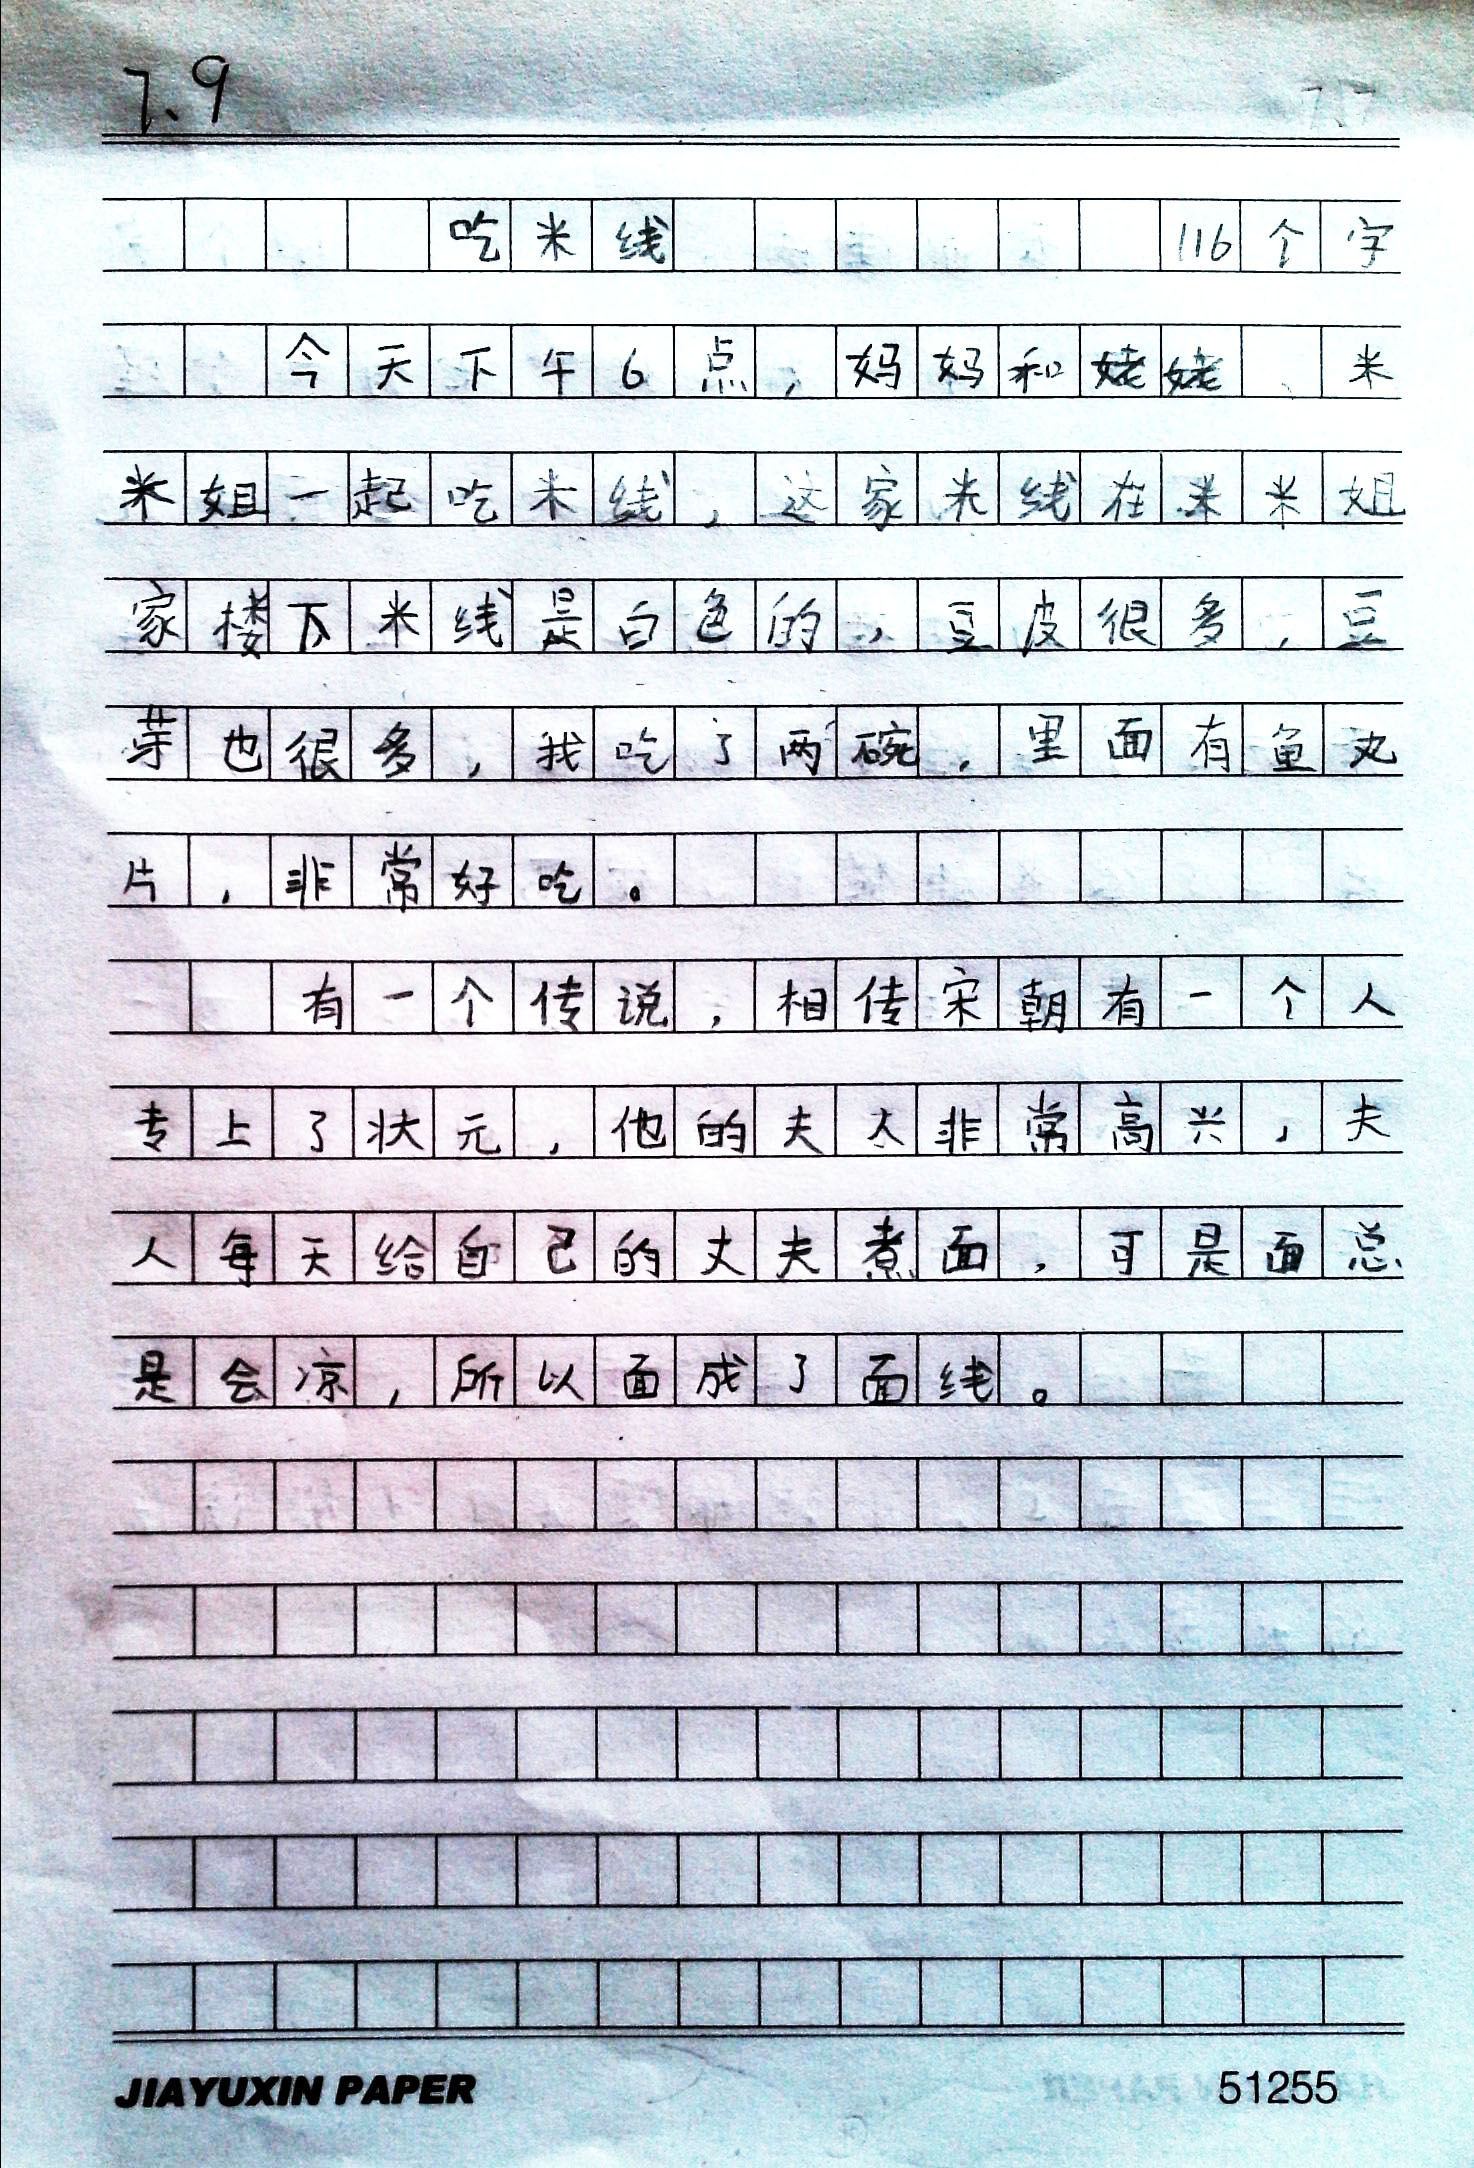 7.9
吃米线 116个字
今天下午6点，妈妈和姥姥、米
米姐一起吃米线，这家米线在米米姐
家楼下米线是白色的，豆皮很多，豆
芽也很多，我吃了两碗，里面有鱼丸
片，非常好吃。
有一个传说，相传宋朝有一个人
专上了状元，他的夫人非常高兴，夫
人每天给自己的丈夫煮面，可是面总
是会凉，所以面成了面线。
JIAYUXIN PAPER 51255